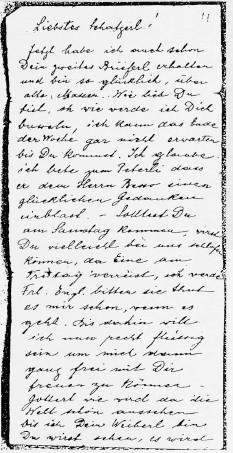 Liebstes Schatzerl! !!
Jetzt habe ich auch schon
Dein zweites Brieferl erhalten
und bin so glücklich, über
alle, Wie lieb Du
bist, ich werde ich Dich
ich kann das Ende
der Woche gar nicht erwarten
bis Du kommst. Ich glaube
ich bete zum Peterli dass
er dem Herrn Besso einen
glücklichen Gedanken
einblast. - Solltest Du
am Samstag kommen, wirst
Du vielleicht bei uns
können, da Eine am
Freitag verreist, ich werde
Frl. Engl. bitten sie thut
es mir schon, wenn es
geht. Bis dahin will
ich nun recht fleissig
sein um mich dann
ganz frei mit Dir
freuen zu können -
wie wird da die
Welt schön aussehen
bis ich Dein Weiberl bin
Du wirst sehen, es wird